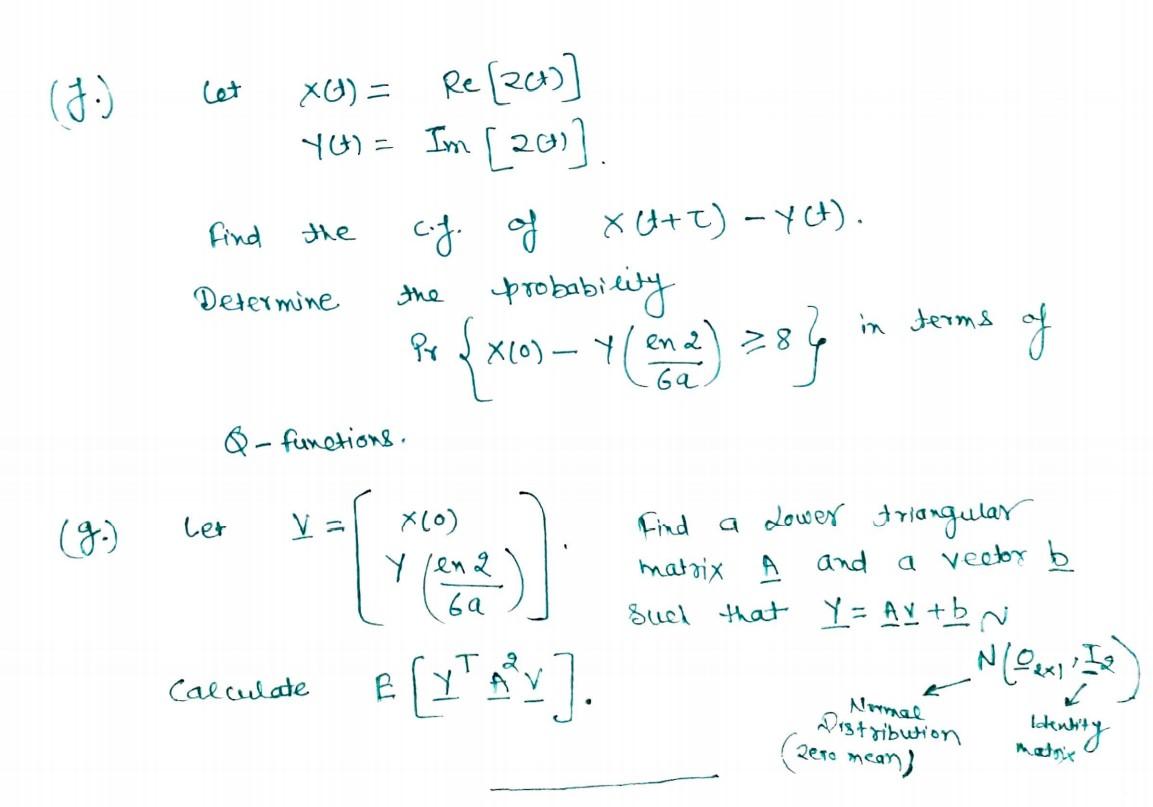 (f.) Let X(t) = Re [Z(t)]
Y(t) = Im [Z(t)].
Find the c.f. of X(t+τ) - Y(t).
Determine the probability
Pr { X(0) - Y(ln 2 / 6a) ≥ 8 } in terms of
Q-functions.
(g.) Let V = [ X(0) ; Y(ln 2 / 6a) ]. Find a Lower triangular
matrix A and a vector b
such that Y = AV + b ~
N(0_{2x1}, I_2)
Calculate E [ Y^T A^2 V ].
Normal
Distribution
(zero mean)
Identity
matrix